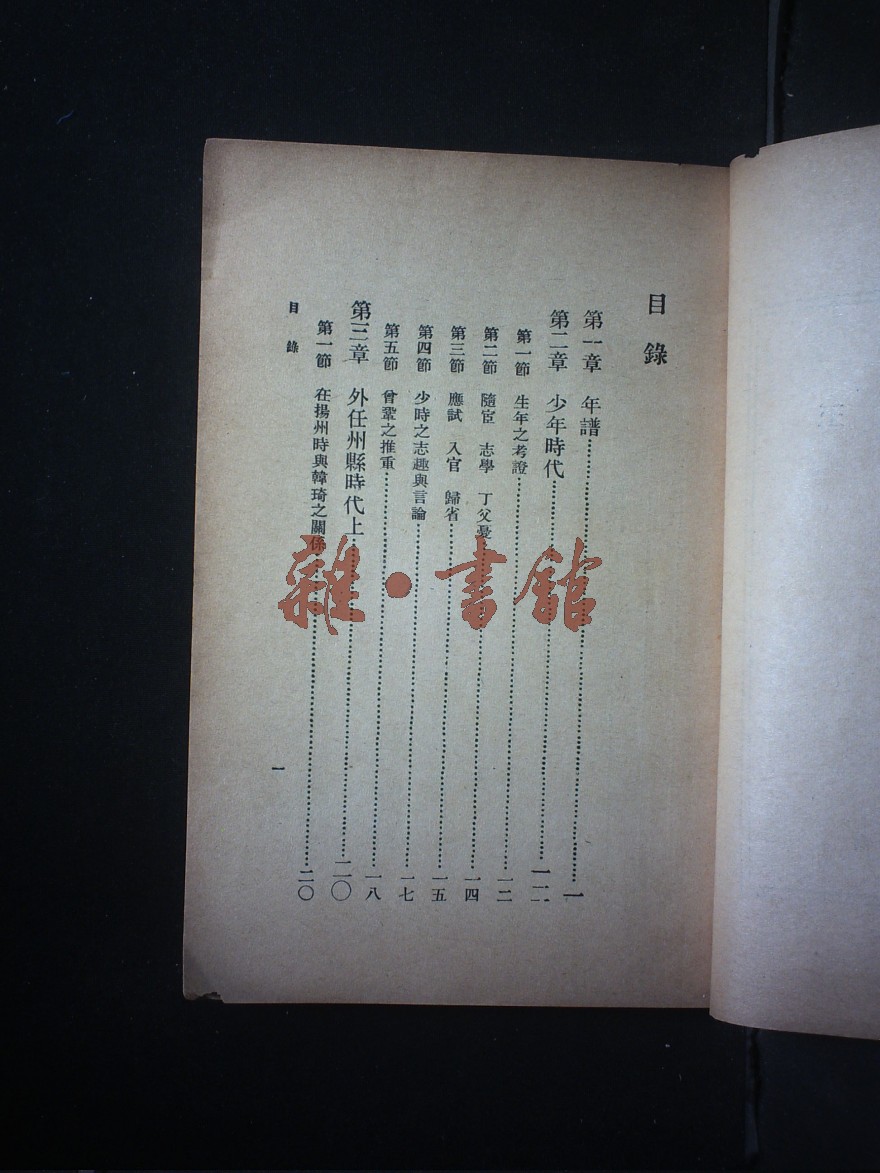 目錄
第一章 年譜……一
第二章 少年時代……一二
第一節 生年之考證……一二
第二節 隨宦 志學 丁父憂……一四
第三節 應試 入官 歸省……一五
第四節 少時之志趣與言論……一七
第五節 曾鞏之推重……一八
第三章 外任州縣時代上……二〇
第一節 在揚州時與韓琦之關係……二〇
目錄
一
雜·書館